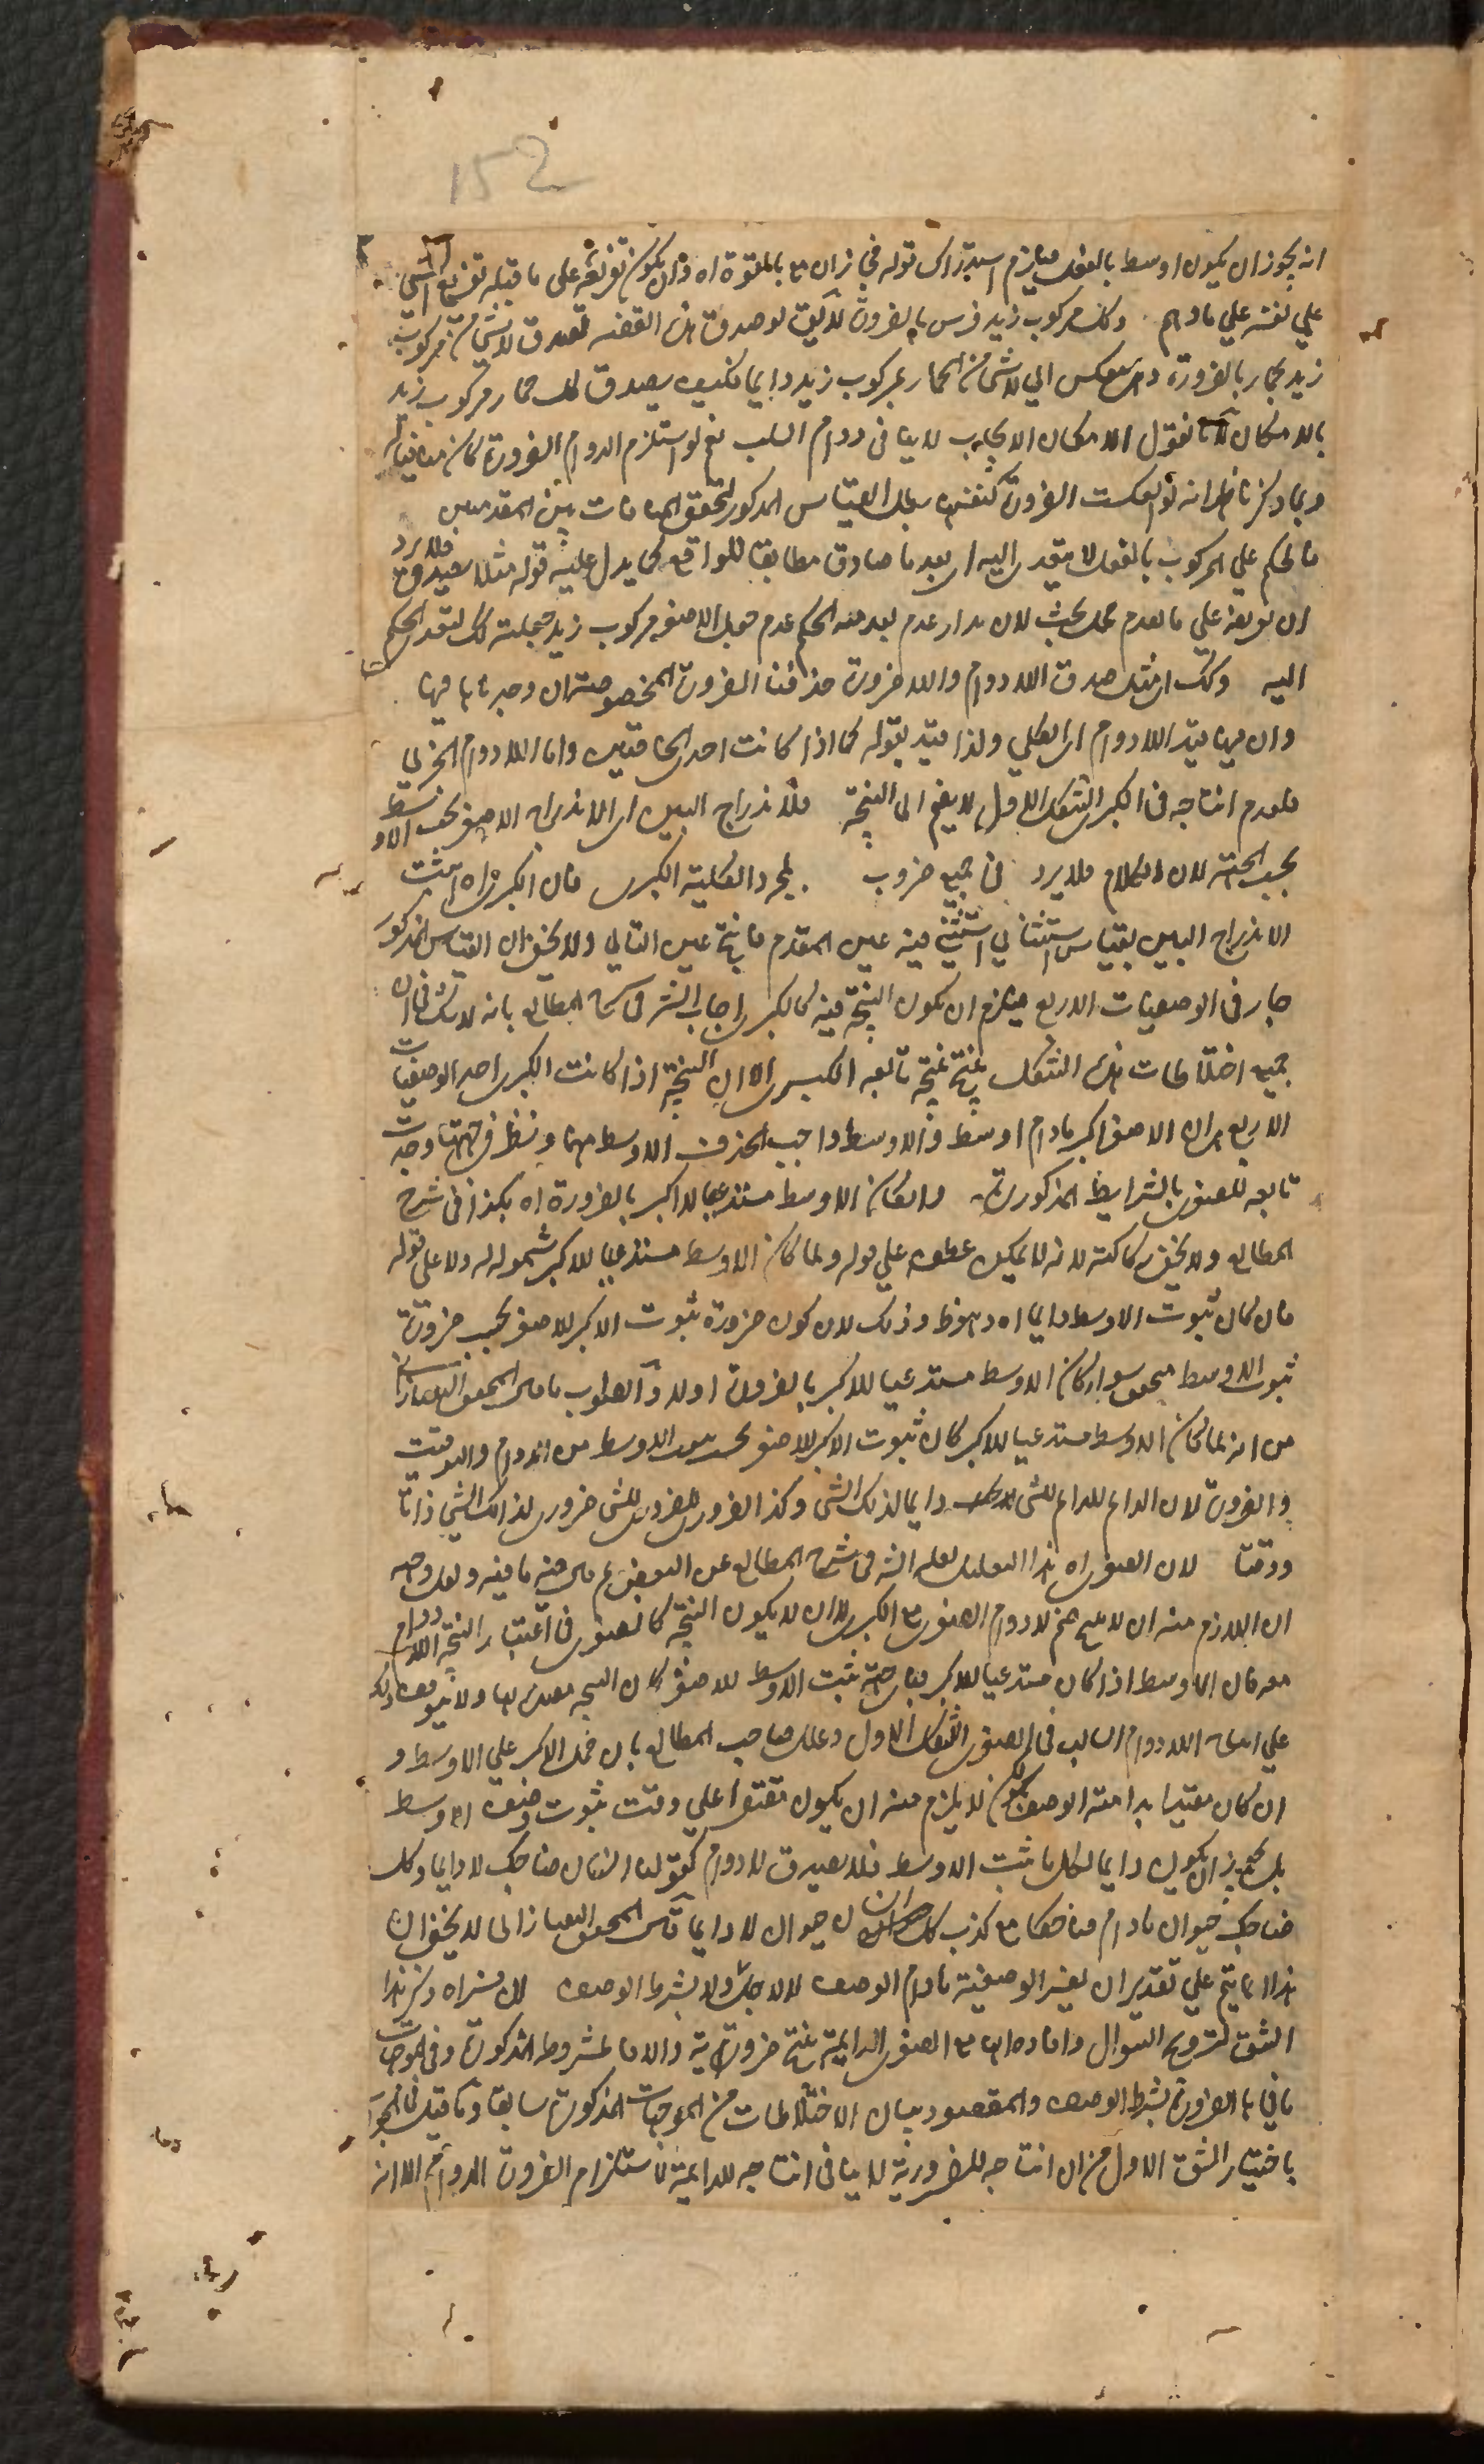 152
انه يجوز ان يكون اوسط بالفعل فيلزم استدراك قوله في زمان ما بالقوة اه وان يكون تفريعه على ما قبله تفريع الشي
علي نفسه علي ما وهم وكل مركوب زيد فرس بالضرورة لا يق لو صدق هذه القضية لصدق لا شي من مركوب
زيد بحمار بالضرورة وهي تنعكس الي لا شي من الحمار بمركوب زيد دايما فكيف يصدق كل حمار مركوب زيد
بالامكان لانا نقول الامكان الايجاب لا ينافي دوام السلب نعم لو استلزم الدوام الضرورة كان منافيا له
وبما ذكرنا ظهر انه لو انعكست الضرورة كنفسها بطل القياس المذكور لتحقق المنافات بين المقدمتين
فالحكم علي المركوب بالفعل لا يتعدى اليه اي بعد ما صادق مطابقا للواقع كما يدل عليه قوله مثلا يصدق فلا يرد
ان تفريعه علي ما تقدم محل بحث لان مدار عدم تعدية الحكم عدم جعل الاصغر مركوب زيد فجعلته كل لتعدى الحكم
اليه وكك ان مثل صدق اللادوام واللاضرورة حذفنا الضرورة المخصوصة ان وجدنا ها فيها
وان فيها قيد اللادوام اي الكلي ولذا قيد بقوله كما اذا كانت احدى الخاصتين واما اللادوام الجزئي
فلعدم انتاجه في الكبرى الشكل الاول لا يضم الى النتيجة فلاندراج البين اي الاندراج الاصغر تحت الاوسط
بحسب الجهة لان الكلام فلا يرد في جميع ضروب بمجرد الكلية الكبرى فان الكبرى اه اثبت
الاندراج البين بقياس استثنائي استثني فيه عين المقدم فانتج عين التالي ولا يخفى ان القياس المذكور
جار في الوصفيات الاربع فيلزم ان يكون النتيجة فيه كالكبرى اجاب الشر في شرح المطالع بانه لا شك في ان
جميع اختلاطات هذا الشكل ينتج نتيجة تابعة الكبرى الا ان النتيجة اذا كانت الكبرى احد الوصفيات
الاربع هي ان الاصغر اكبر مادام اوسط والاوسط واجب الحذف الاوسط منها ونظر في جهتها وجدت
تابعة للصغرى بالشرايط المذكورة وان كان الاوسط مستدعيا للاكبر بالضرورة اه هكذا في شرح
المطالع ولا يخفى ركاكته لانه لا يمكن عطفه علي قوله ولما كان الاوسط مستدعيا للاكبر لشموله له ولا على قوله
فان كان ثبوت الاوسط دايما اه وهو ظ وذلك لان كون ضرورة ثبوت الاكبر للاصغر بحسب ضرورة
ثبوت الاوسط متحقق سواء كان الاوسط مستدعيا للاكبر بالضرورة اولا والصواب ما قال المحقق التفتازاني
من انه لما كان الاوسط مستدعيا للاكبر كان ثبوت الاكبر للاصغر بحسب ثبوت الاوسط من الدوام والتوقيت
والضرورة لان الدايم للدايم للشي دايما لذلك الشي وكذا الضروري للضروري للشي ضروري لذلك الشي ذاتا
ووقتا لان الصغرى اه هذا التعليل نقله الشر في شرح المطالع عن البعض ثم قال فيه ما فيه ولعل وجهه
ان اللازم منه ان لا يصح ضم لا دوام الصغرى مع الكبرى لا ان لا يكون النتيجة كالصغرى في اعتبار النتيجة اللادوام
معه فان الاوسط اذا كان مستدعيا للاكبر فباي جهة ثبت الاوسط للاصغر كان النتيجة مقيدة بها ولا يتوقف ذلك
علي انتاج اللادوام السالب في الصغرى الشكل الاول وعلل صاحب المطالع بان حمل الاكبر علي الاوسط و
ان كان مقيدا بدايمة الوصف لكن لا يلزم منه ان يكون مقتصرا علي وقت ثبوت وصف الاوسط
بل يجوز ان يكون دايما لكل ما ثبت الاوسط فلا يصدق لا دوام كقولنا كل انسان ضاحك لا دايما وكل
ضاحك حيوان مادام ضاحكا مع كذب كل انسان حيوان لا دايما قال المحقق التفتازاني لا يخفى ان
هذا انما يتم علي تقدير ان يفسر الوصفية ما دام الوصف لا لاجله ولا بشرط الوصف لان نفسراه ذكر هذا
الشق لترويح السوال وافاده ان مع الصغرى الدايمة ينتج ضرورية والا فالمشروطة المذكورة وفي الموجبات
ما في بالضرورة بشرط الوصف والمقصود بيان الاختلاطات من الموجبات المذكورة سابقا وما قيل في الجواب
باختيار الشق الاول من ان انتاجه للضرورية لا ينافي انتاجه للدايمة لاستلزام الضرورة الدوام الا انه